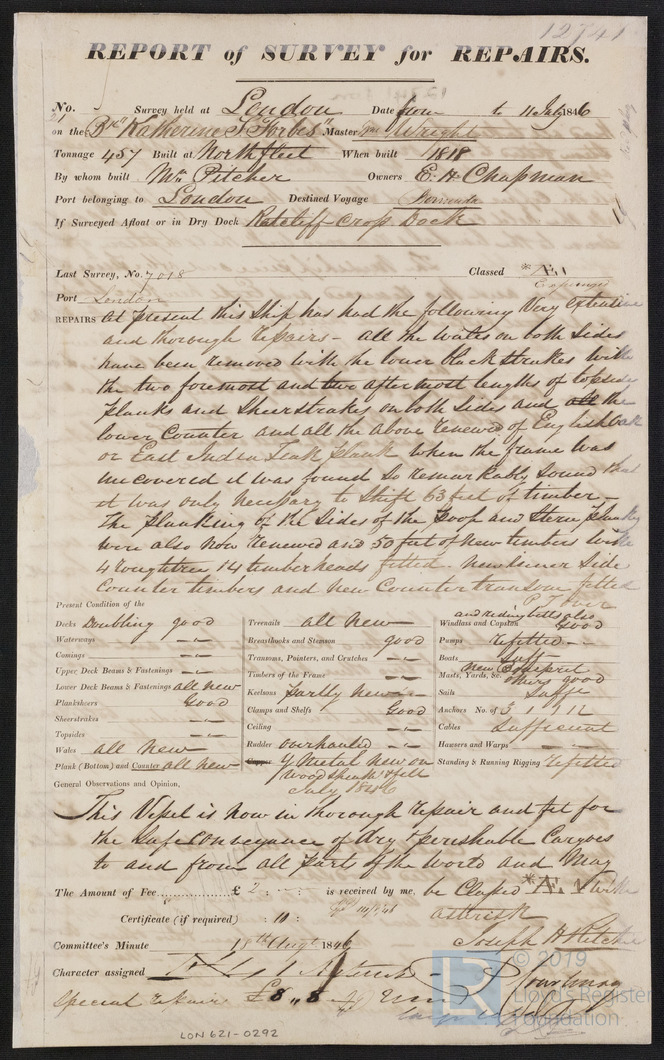 12741
REPORT of SURVEY for REPAIRS.
No. Survey held at London Date from to 11 July 1846
on the Bk "Katherine S. Forbes" Master Wm Wright
Tonnage 457 Built at Northfleet When built 1818
By whom built Mr. Pitcher Owners E. H. Chapman
Port belonging to London Destined Voyage Bermuda
If Surveyed Afloat or in Dry Dock Ratcliff Cross Dock
Last Survey, No. 7018 Classed *Æ1
Port London Expunged
REPAIRS At present this Ship has had the following Very extensive
and thorough repairs – all the Wales on both Sides
have been removed with the lower black strakes with
the two foremost and two aftermost lengths of topside
planks and Sheerstrakes on both Sides and all the
lower Counter and all the above renewed of English Oak
or East India Teak plank when the frame was
uncovered it was found so remarkably sound that
it was only necessary to Shift 63 feet of timber –
The planking of the Sides of the Poop and Stern planking
were also now renewed and 50 feet of new timbers with
4 roughtree 14 timberheads fitted. New Side
Counter timbers and new Counter transom fitted
P. over
Present Condition of the
Decks Doubling good
Waterways
Comings
Upper Deck Beams & Fastenings
Lower Deck Beams & Fastenings all new
Planksheers Good
Sheerstrakes
Topsides
Wales all new
Plank (Bottom) and Counter all new
Treenails all new
Breasthooks and Stemson good
Transoms, Pointers, and Crutches
Timbers of the Frame
Keelsons partly new
Clamps and Shelfs Good
Ceiling
Rudder overhauled
Copper Y Metal new on
Wood sheath & felt
July 1846
and riding bitts also
Windlass and Capstan Good
Pumps refitted
Boats
new Bowsprit
Masts, Yards, &c. others good
Sails Suffs
Anchors No. of 3 1 1 12
Cables Sufficient
Hausers and Warps
Standing & Running Rigging refitted
General Observations and Opinion,
This Vessel is now in thorough repair and fit for
the Safe Conveyance of dry & perishable Cargoes
to and from all parts of the World and May
The Amount of Fee £ 2 : - : - is received by me, be Classed *Æ 1 with
Certificate (if required) : 10 : asterisk
Committee's Minute 18th Augt 1846 Joseph H Pitcher
Character assigned
Special repair £8 „ 8
LON 621-0292
© 2019
LR
Lloyd's Register
Foundation